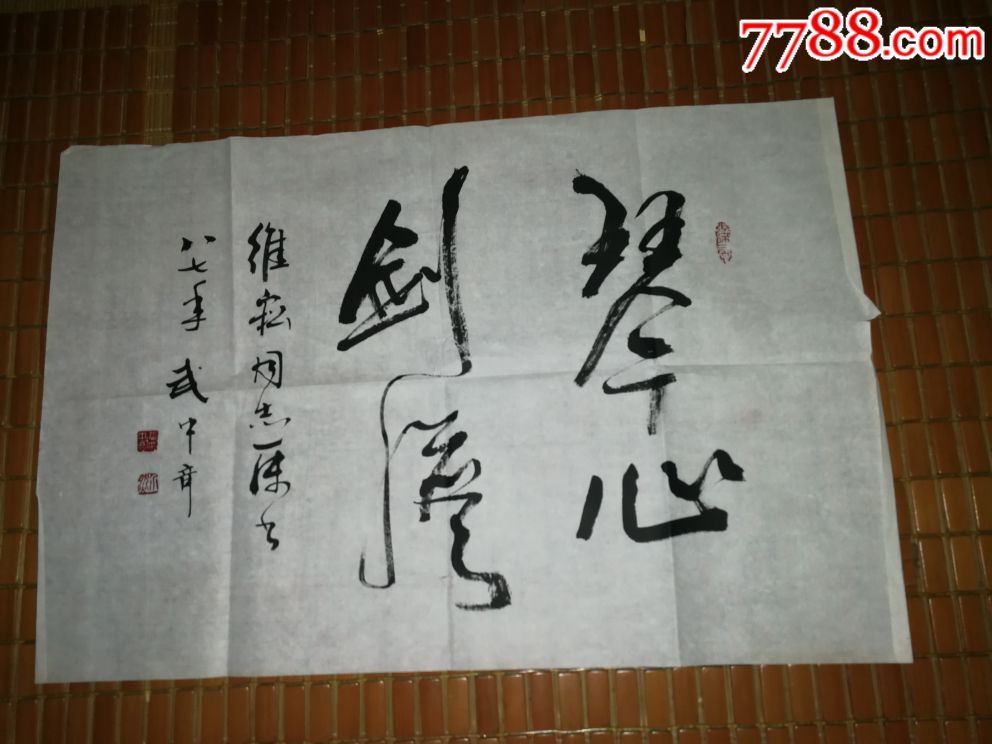 7788.com
琴心
剑胆
维崧同志属书
八七年 武中奇